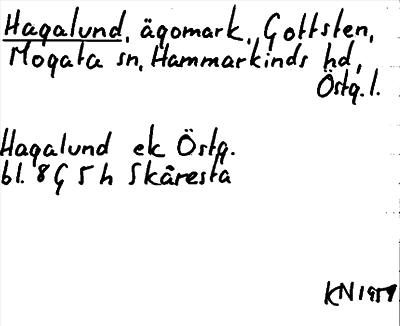 Hagalund, ägomark, Gottsten,
Mogata sn, Hammarkinds hd,
Östg. l.
Hagalund ek Östg.
bl. 8 G 5 h Skåresta
KN 1959